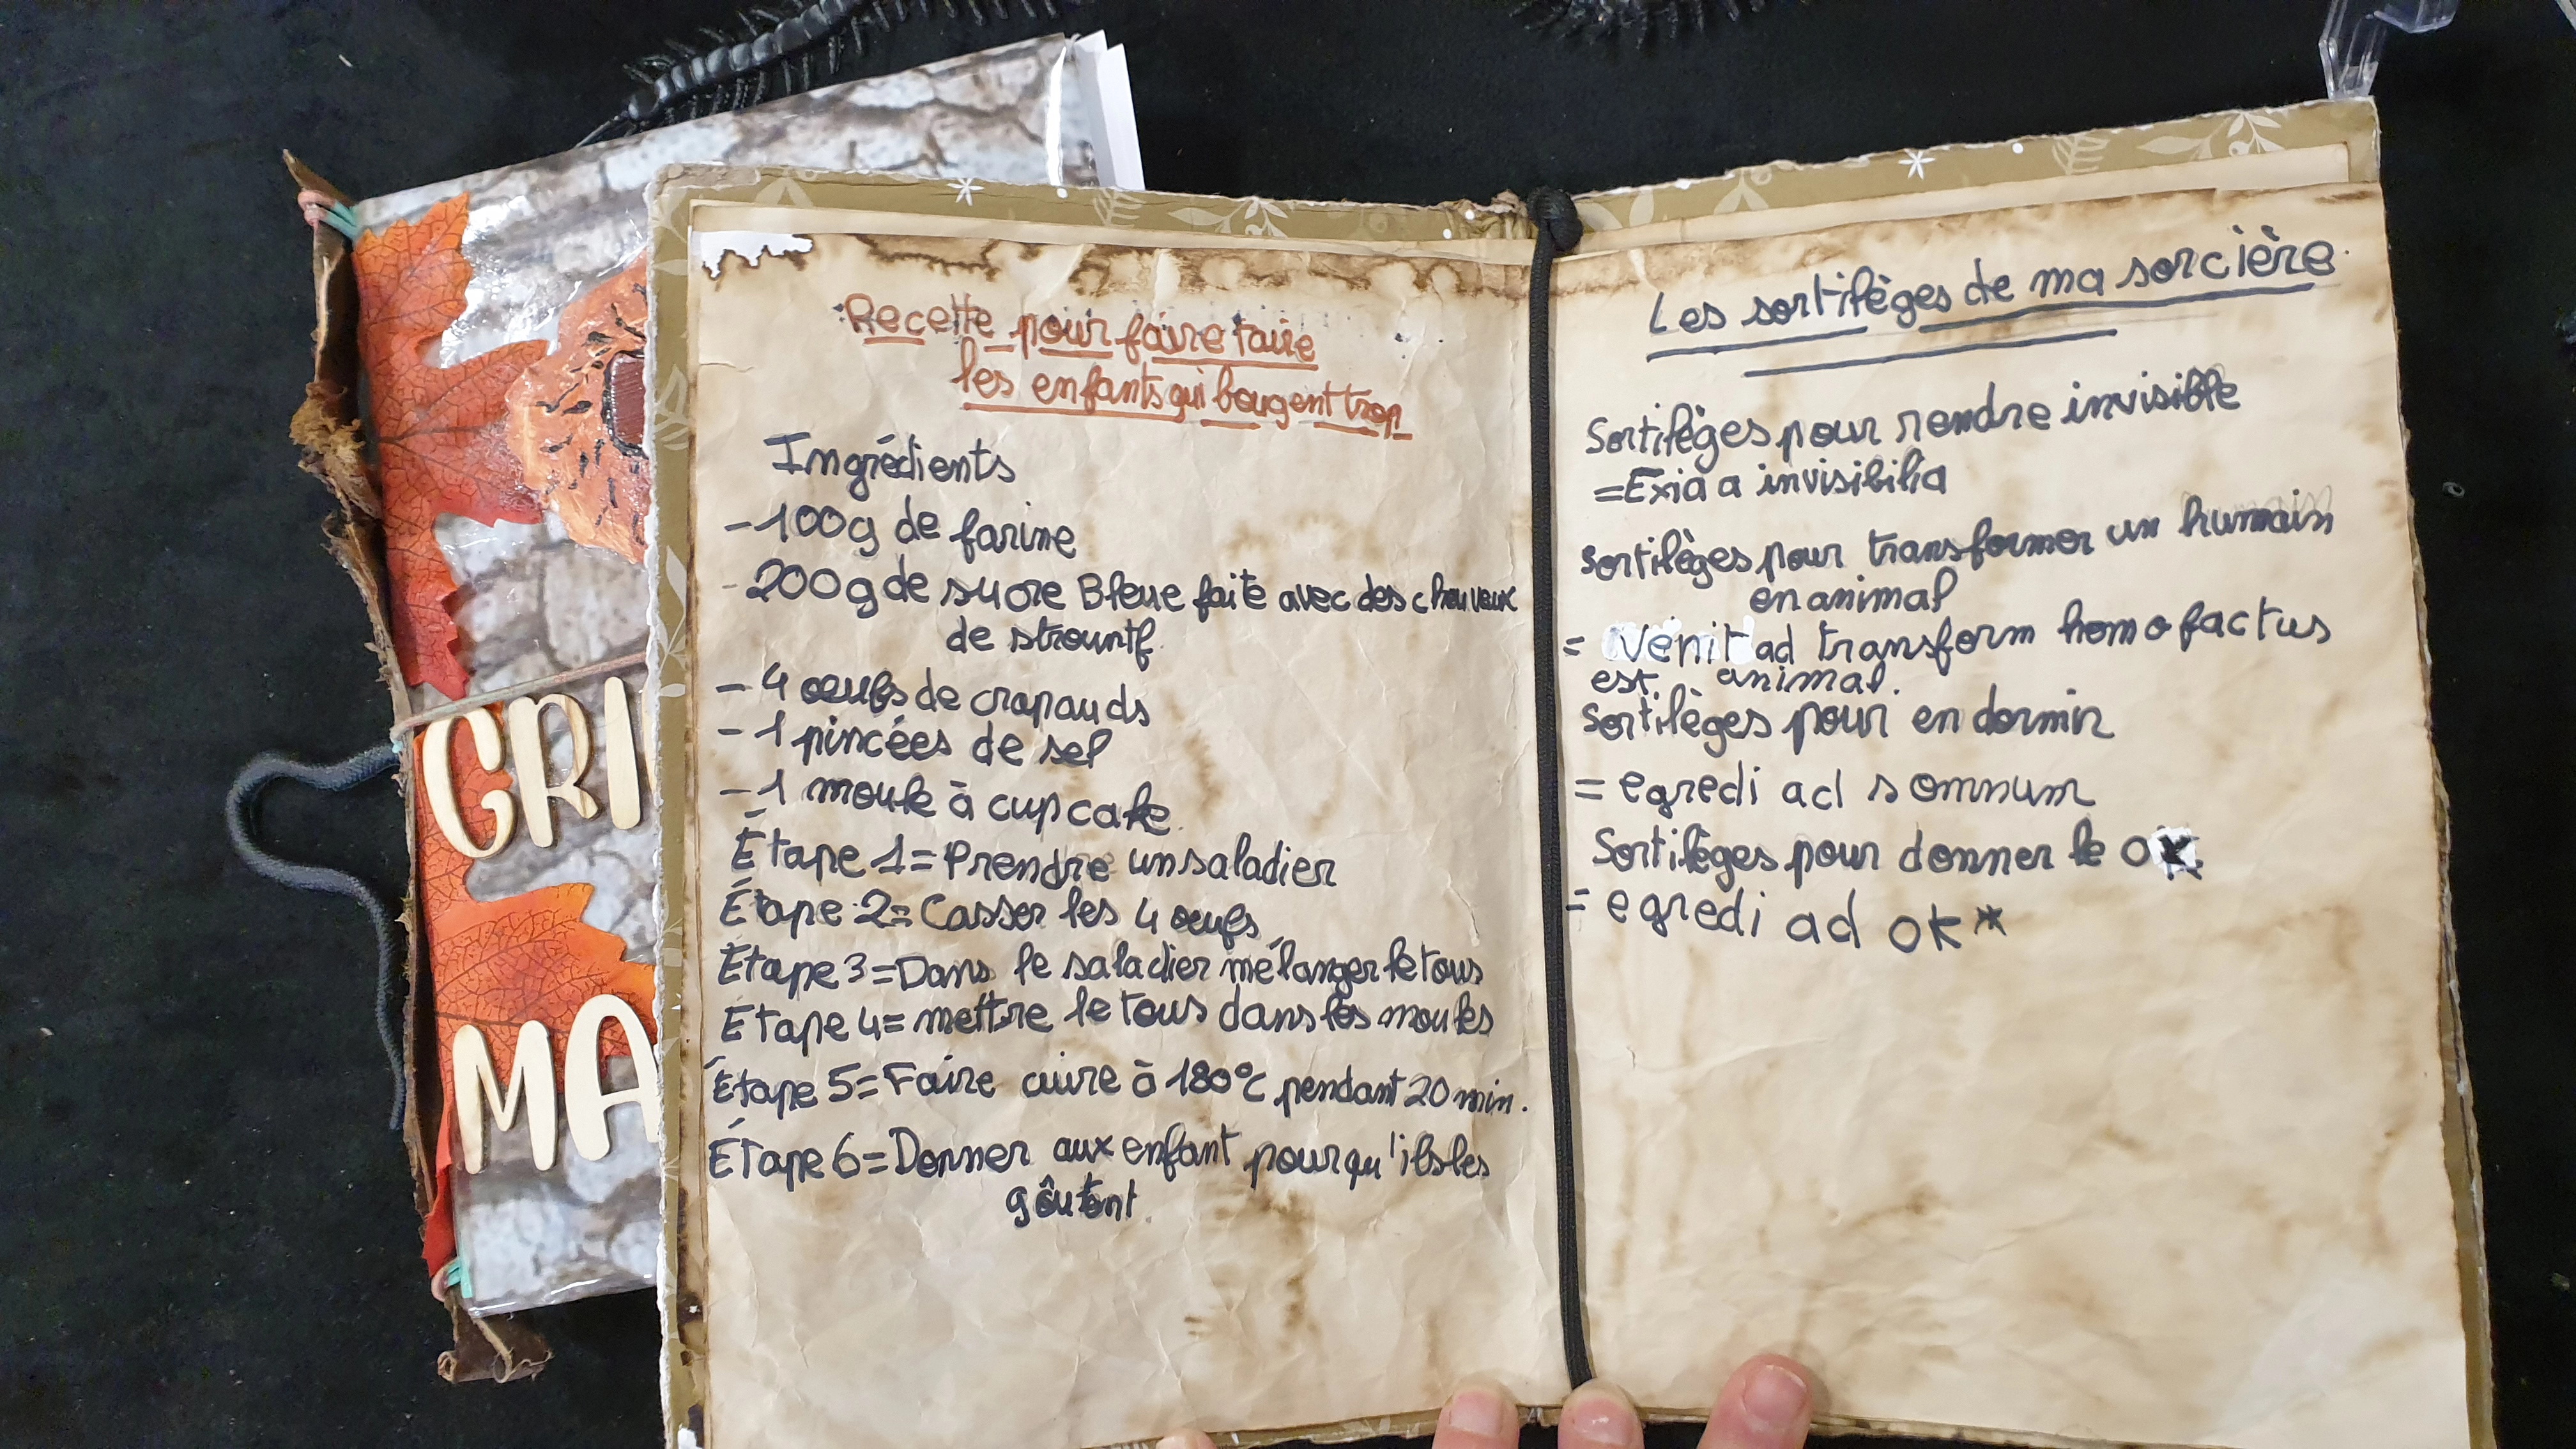 GRI
MA
Recette pour faire taire
les enfants qui bougent trop
Ingrédients
- 100g de farine
- 200g de sucre Bleue faite avec des cheuveux
de strountf.
- 4 oeufs de crapauds
- 1 pincées de sel
- 1 moule à cupcake.
Étape 1 = Prendre un saladier
Étape 2 = Casser les 4 oeufs
Étape 3 = Dans le saladier mélanger le tous
Étape 4 = mettre le tous dans les moules
Étape 5 = Faire cuire à 180°C pendant 20 min.
Étape 6 = Donner aux enfant pour qu'ils les
goûtent.
Les sortilèges de ma sorcière
Sortilèges pour rendre invisible
= Exia a invisibilia
Sortilèges pour transformer un humain
en animal
= Venit ad transform homo factus
est animal.
Sortilèges pour endormir
= egredi ad somnum
Sortilèges pour donner le OK.
= egredi ad OK*